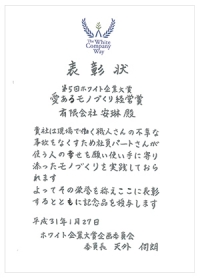 The White
Company
Way
表彰状
第5回ホワイト企業大賞
愛あるモノづくり経営賞
有限会社 安琳 殿
貴社は現場で働く職人さんの不幸な
事故をなくすため社員パートさんが
使う人の幸せを願い使い手に寄り
添ったモノづくりを実践しておられ
ます
よってその栄誉を称えここに表彰
するとともに記念品を贈与します
平成31年1月27日
ホワイト企業大賞企画委員会
委員長 天外 伺朗